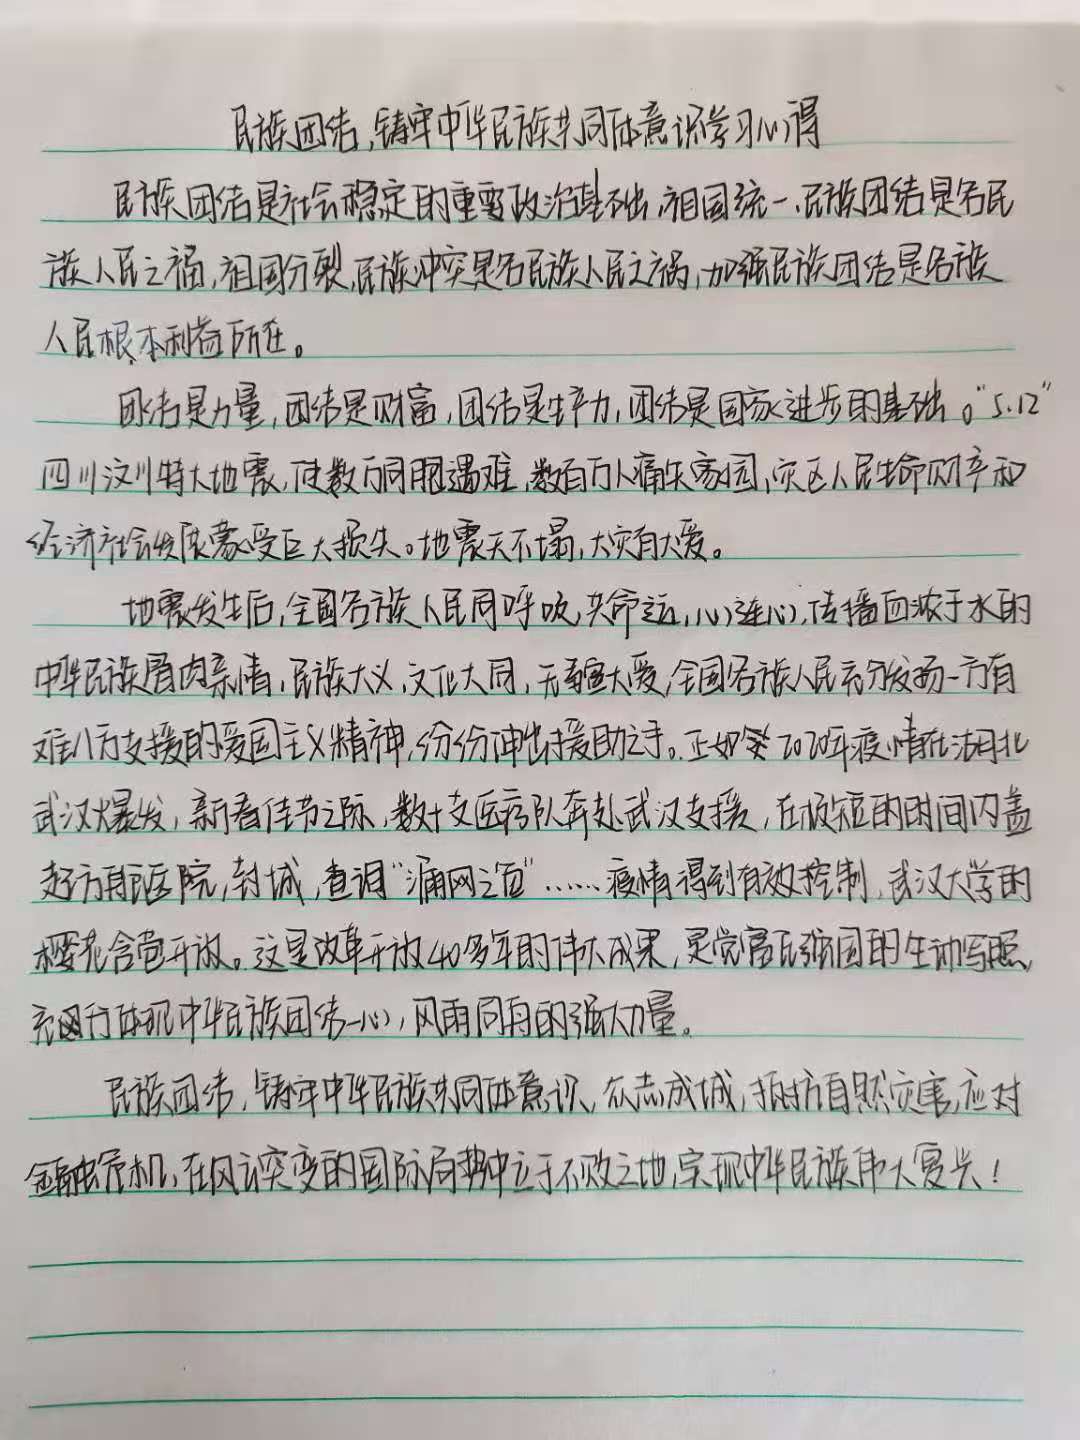 民族团结,铸牢中华民族共同体意识学习心得
民族团结是社会稳定的重要政治基础,祖国统一、民族团结是各民
族人民之福,祖国分裂,民族冲突是各民族人民之祸,加强民族团结是各族
人民根本利益所在。
团结是力量,团结是财富,团结是生产力,团结是国家进步的基础。“5.12”
四川汶川特大地震,使数万同胞遇难,数百万人痛失家园,灾区人民生命财产和
经济社会发展蒙受巨大损失。地震天不塌,大灾有大爱。
地震发生后,全国各族人民同呼吸,共命运,心连心,传播血浓于水的
中华民族骨肉亲情,民族大义,文化大同,无疆大爱,全国各族人民充分发扬一方有
难八方支援的爱国主义精神,份份伸出援助之手。正如 2020年疫情在湖北
武汉爆发,新春佳节之际,数十支医疗队奔赴武汉支援,在极短的时间内盖
起方舱医院,封城,查调“漏网之鱼”……疫情得到有效控制,武汉大学的
樱花含苞开放。这是改革开放40多年的伟大成果,是党富民强国的生动写照,
充分体现中华民族团结一心,风雨同舟的强大力量。
民族团结,铸牢中华民族共同体意识,众志成城,抵抗自然灾害,应对
金融危机,在风云突变的国际局势中立于不败之地,实现中华民族伟大复兴!